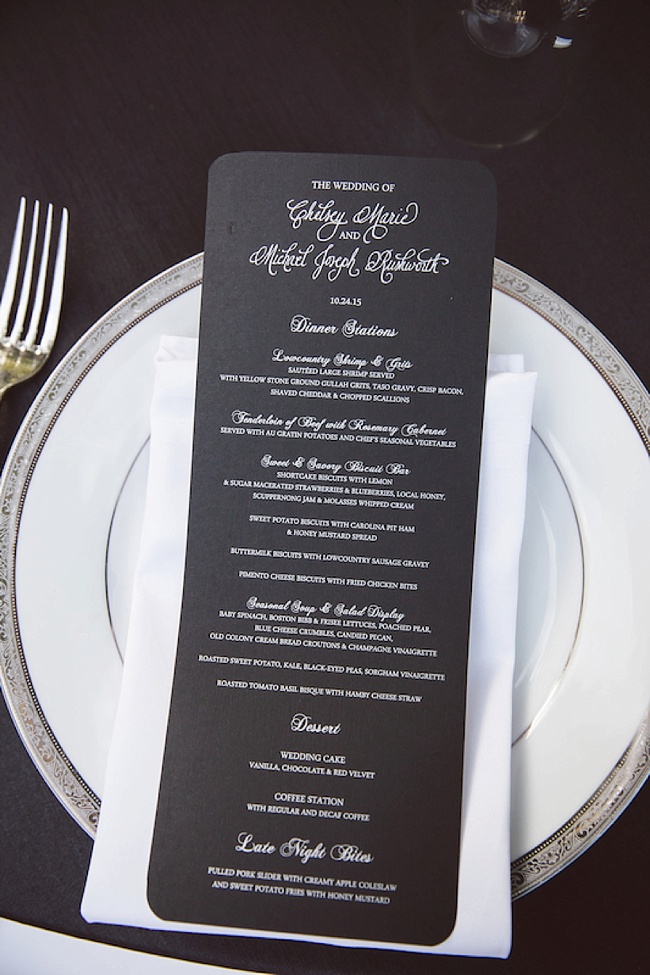 THE WEDDING OF
Chelsey Marie
AND
Michael Joseph Rushworth
10.24.15
Dinner Stations
Lowcountry Shrimp & Grits
SAUTÉED LARGE SHRIMP SERVED
WITH YELLOW STONE GROUND GULLAH GRITS, TASO GRAVY, CRISP BACON,
SHAVED CHEDDAR & CHOPPED SCALLIONS
Tenderloin of Beef with Rosemary Cabernet
SERVED WITH AU GRATIN POTATOES AND CHEF'S SEASONAL VEGETABLES
Sweet & Savory Biscuit Bar
SHORTCAKE BISCUITS WITH LEMON
& SUGAR MACERATED STRAWBERRIES & BLUEBERRIES, LOCAL HONEY,
SCUPPERNONG JAM & MOLASSES WHIPPED CREAM
SWEET POTATO BISCUITS WITH CAROLINA PIT HAM
& HONEY MUSTARD SPREAD
BUTTERMILK BISCUITS WITH LOWCOUNTRY SAUSAGE GRAVEY
PIMENTO CHEESE BISCUITS WITH FRIED CHICKEN BITES
Seasonal Soup & Salad Display
BABY SPINACH, BOSTON BIBB & FRISEE LETTUCES, POACHED PEAR,
BLUE CHEESE CRUMBLES, CANDIED PECAN,
OLD COLONY CREAM BREAD CROUTONS & CHAMPAGNE VINAIGRETTE
ROASTED SWEET POTATO, KALE, BLACK-EYED PEAS, SORGHAM VINAIGRETTE
ROASTED TOMATO BASIL BISQUE WITH HAMBY CHEESE STRAW
Dessert
WEDDING CAKE
VANILLA, CHOCOLATE & RED VELVET
COFFEE STATION
WITH REGULAR AND DECAF COFFEE
Late Night Bites
PULLED PORK SLIDER WITH CREAMY APPLE COLESLAW
AND SWEET POTATO FRIES WITH HONEY MUSTARD